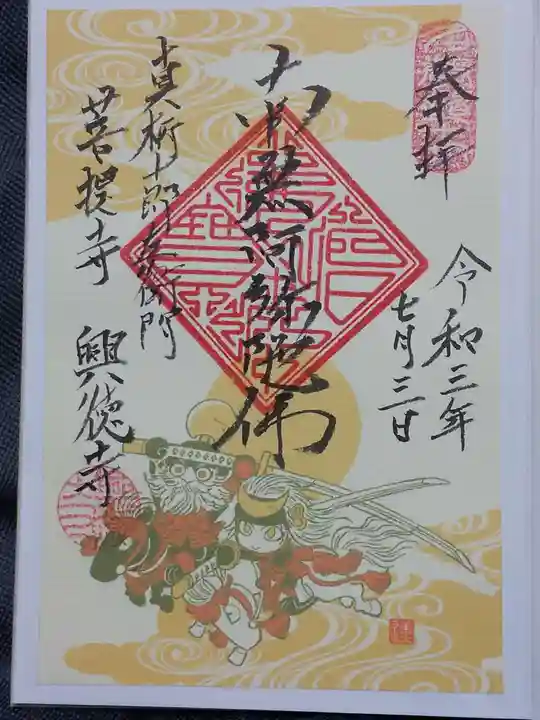 奉拝
令和三年
七月三日
南無阿弥陀佛
貞柳十郎左衛門
菩提寺 興徳寺